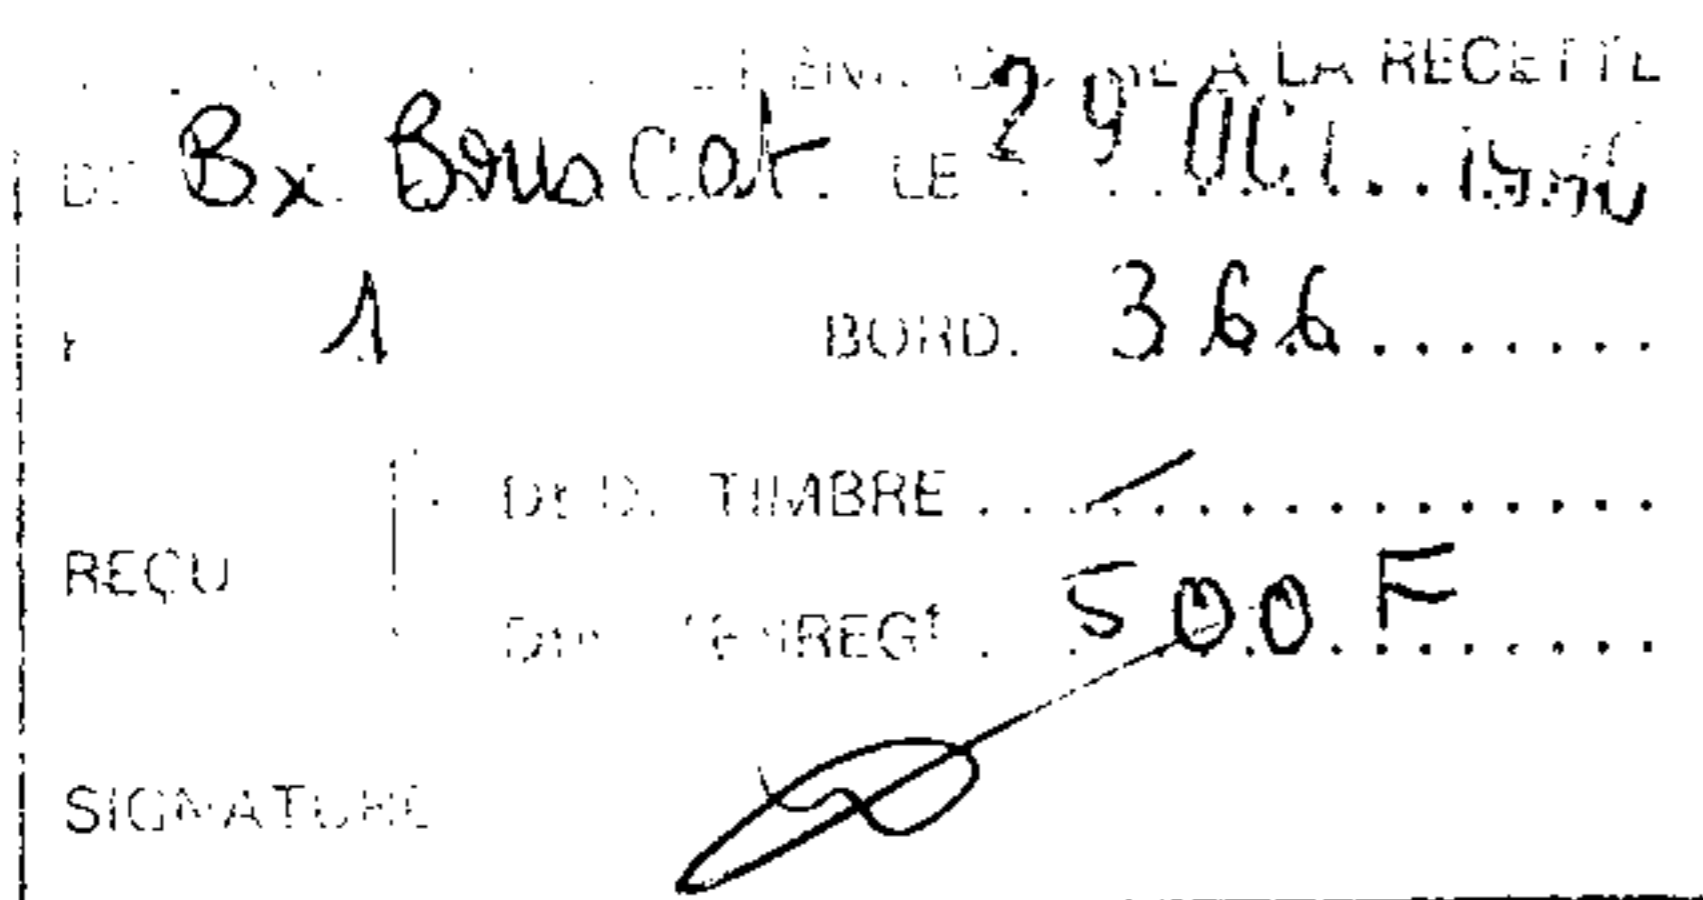 A LA RECETTE
DE Bx Bouscat. LE 29 OCT.
1 BORD. 366
DE D. TIMBRE
REÇU
500 F
SIGNATURE